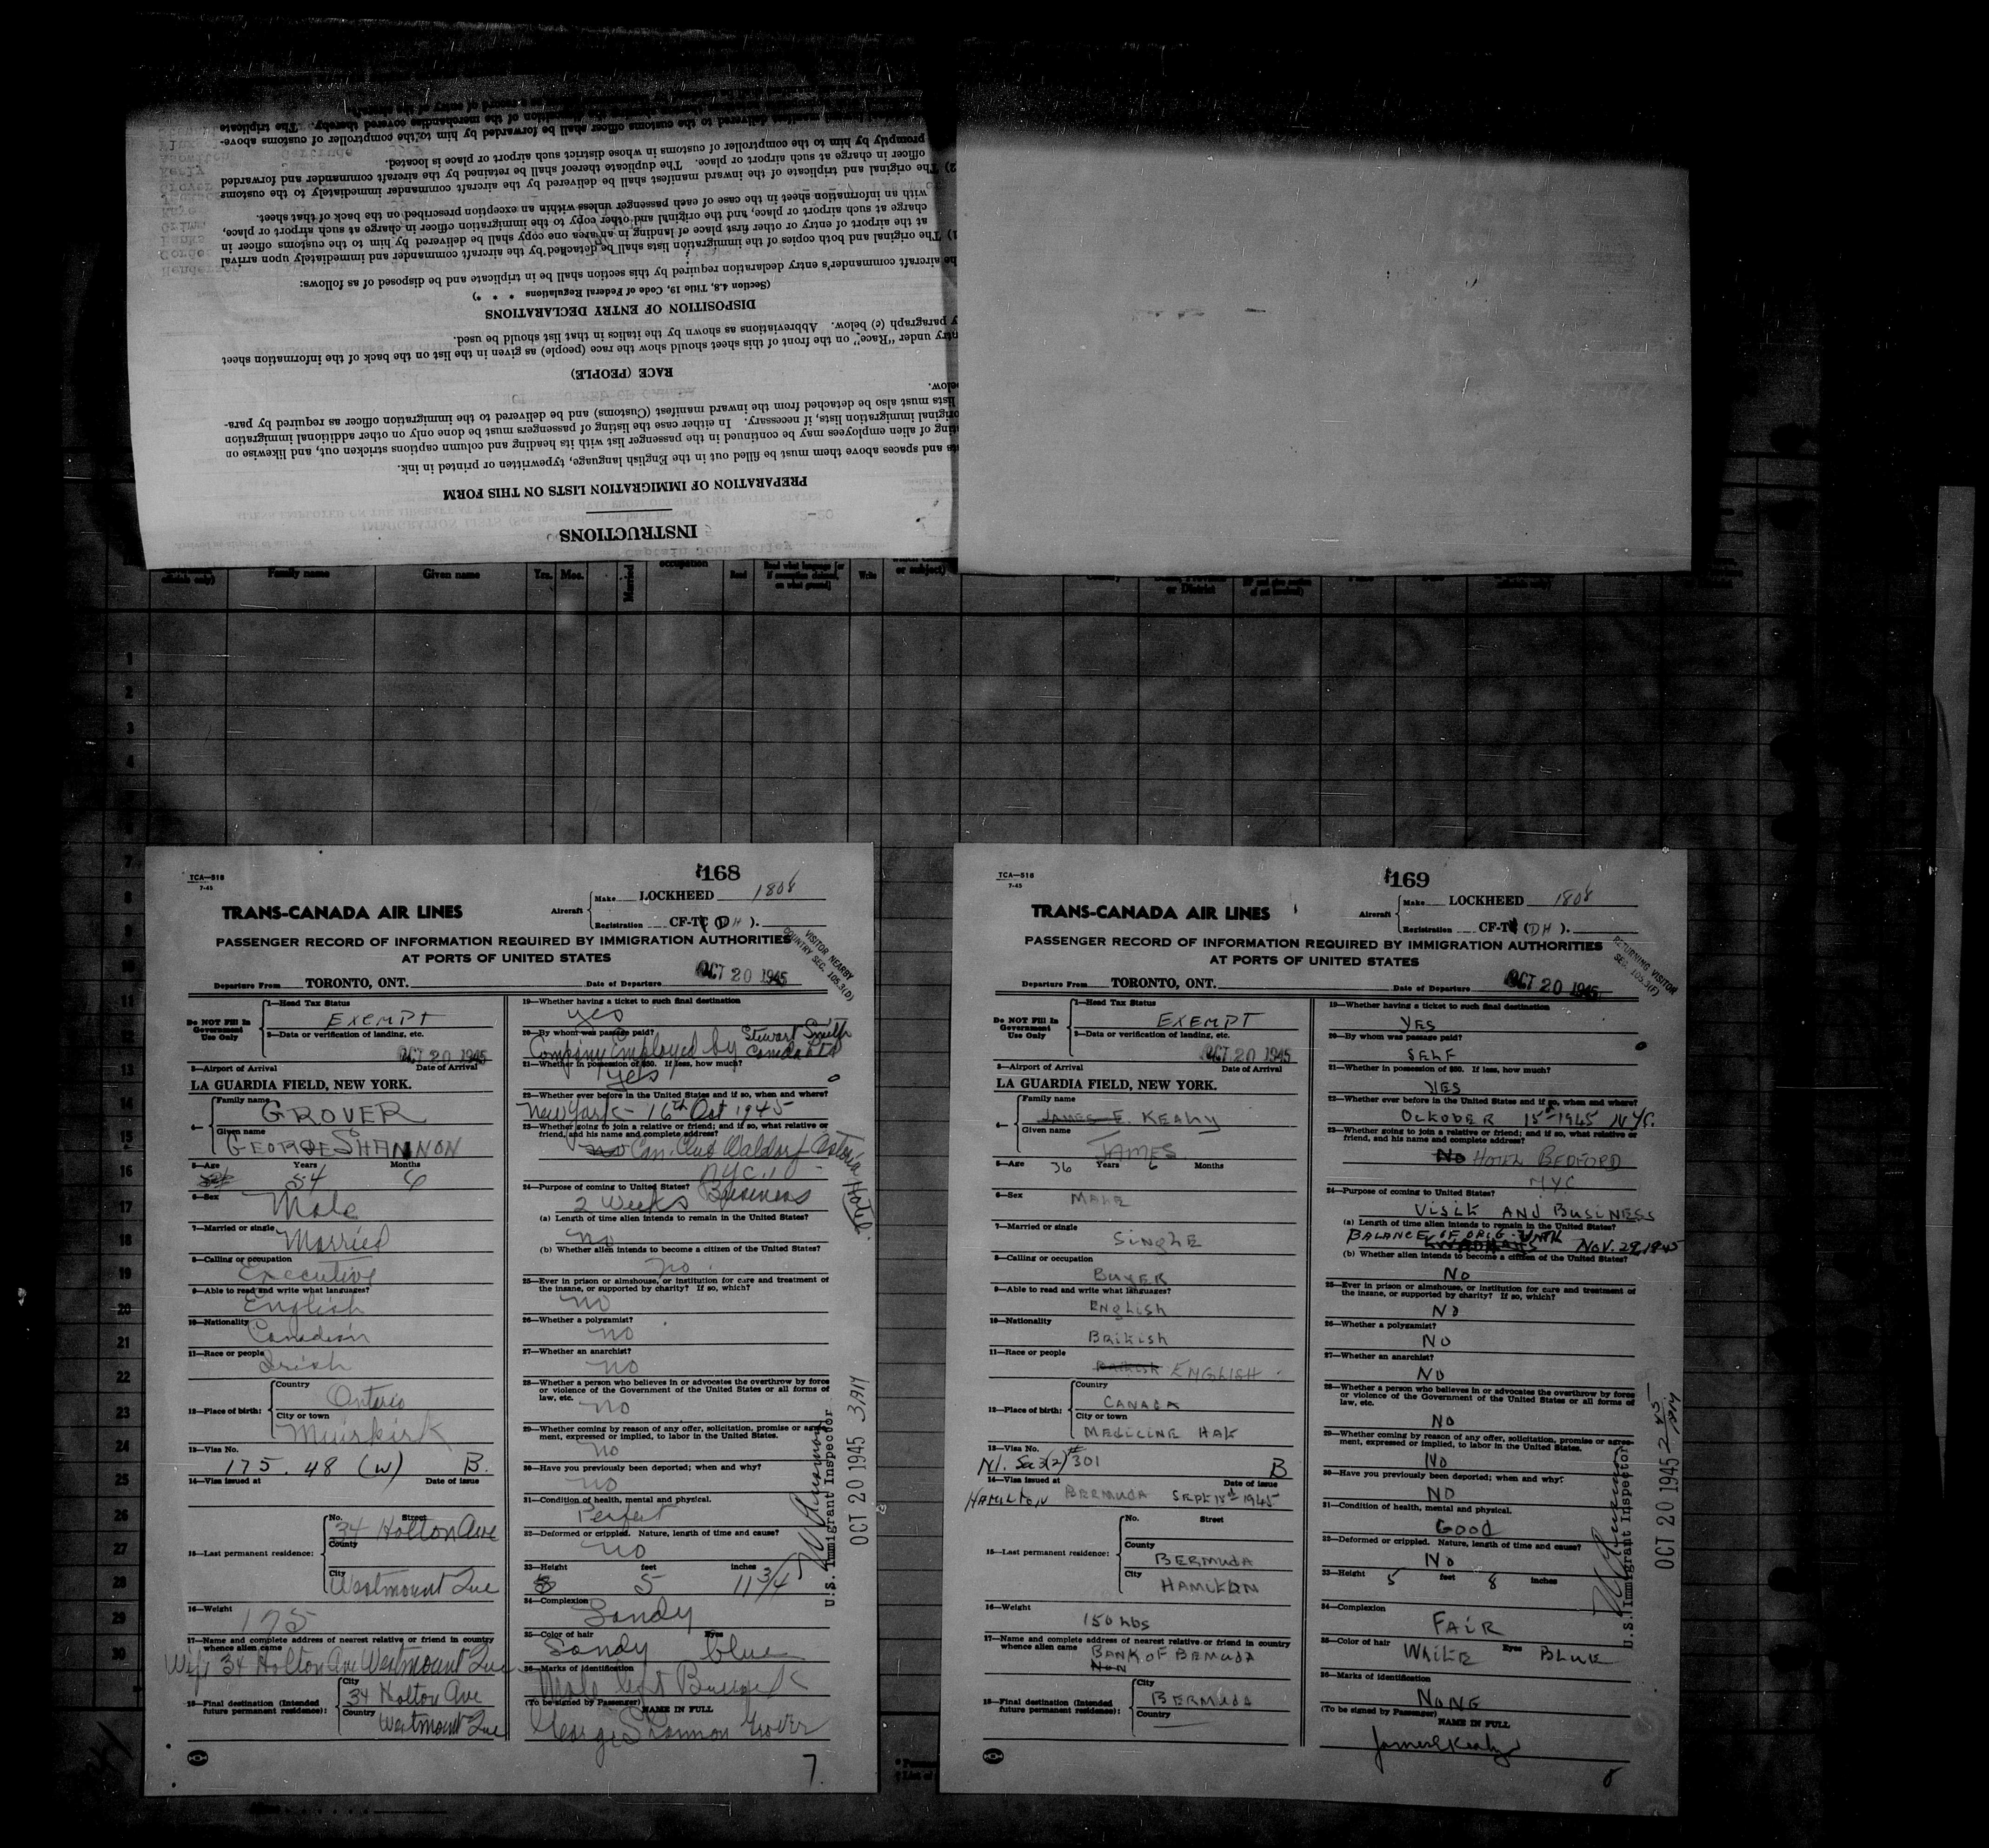 INSTRUCTIONS
PREPARATION OF IMMIGRATION LISTS ON THIS FORM
and spaces above them must be filled out in the English language, typewritten or printed in ink.
of alien employees may be continued in the passenger list with its heading and column captions stricken out, and likewise on
original immigration lists, if necessary. In either case the listing of passengers must be done only on other additional immigration
lists must also be detached from the inward manifest (Customs) and be delivered to the immigration officer as required by para-
below.
RACE (PEOPLE)
under "Race" on the front of this sheet should show the race (people) as given in the list on the back of the information sheet
paragraph (c) below. Abbreviations as shown by the italics in that list should be used.
DISPOSITION OF ENTRY DECLARATIONS
(Section 4.8, Title 19, Code of Federal Regulations * * *)
aircraft commander's entry declaration required by this section shall be in triplicate and be disposed of as follows:
1) The original and both copies of the immigration lists shall be detached by the aircraft commander and immediately upon arrival
at the airport of entry or other first place of landing in an area one copy shall be delivered by him to the customs officer in
charge at such airport or place, and the original and other copy to the immigration officer in charge at such airport or place,
with an information sheet in the case of each passenger unless within an exception prescribed on the back of that sheet.
2) The original and triplicate of the inward manifest shall be delivered by the aircraft commander immediately to the customs
officer in charge at such airport or place. The duplicate thereof shall be retained by the aircraft commander and forwarded
promptly by him to the comptroller of customs in whose district such airport or place is located.
manifest delivered to the customs officer shall be forwarded by him to the comptroller of customs above-
of the merchandise covered thereby. The triplicate
Family name Given name Yrs. Mos. Married occupation Read Write or subject)
or District
1
2
3
4
7
8
9
11
13
14
15
16
17
18
19
20
21
22
23
24
25
26
27
28
29
30
TCA—518
7-45
168
TRANS-CANADA AIR LINES
Aircraft Make LOCKHEED 1808
Registration CF-TC (DH).
PASSENGER RECORD OF INFORMATION REQUIRED BY IMMIGRATION AUTHORITIES
AT PORTS OF UNITED STATES
VISITOR NEARBY
COUNTRY SEC. 105.3(D)
Departure From TORONTO, ONT. Date of Departure OCT 20 1945
Do NOT Fill In
Government
Use Only
1—Head Tax Status
EXEMPT
2—Data or verification of landing, etc.
OCT 20 1945
3—Airport of Arrival Date of Arrival
LA GUARDIA FIELD, NEW YORK.
4— Family name
GROVER
Given name
GEORGE SHANNON
5—Age Years Months
54 6
6—Sex
Male
7—Married or single
Married
8—Calling or occupation
Executive
9—Able to read and write what languages?
English
10—Nationality
Canadian
11—Race or people
Irish
12—Place of birth: Country
Ontario
City or town
Muirkirk
13—Visa No.
175.48 (W) B.
14—Visa issued at Date of issue
15—Last permanent residence: No. Street
34 Holton Ave
County
City
Westmount Que
16—Weight
175
17—Name and complete address of nearest relative or friend in country
whence alien came
Wife 34 Holton Ave Westmount Que
18—Final destination (Intended
future permanent residence):
City
34 Holton Ave
Country
Westmount Que
19—Whether having a ticket to such final destination
yes
20—By whom was passage paid? Stewart Smith
Company Employed by Canada LTD
21—Whether in possession of $50. If less, how much?
yes
22—Whether ever before in the United States and if so, when and where?
New York - 16th Oct 1945
23—Whether going to join a relative or friend; and if so, what relative or
friend, and his name and complete address?
no Can. Club Waldorf Astoria Hotel.
NYC.
24—Purpose of coming to United States? Business
2 weeks
(a) Length of time alien intends to remain in the United States?
no
(b) Whether alien intends to become a citizen of the United States?
no.
25—Ever in prison or almshouse, or institution for care and treatment of
the insane, or supported by charity? If so, which?
no
26—Whether a polygamist?
no
27—Whether an anarchist?
no
28—Whether a person who believes in or advocates the overthrow by force
or violence of the Government of the United States or all forms of
law, etc.
no
29—Whether coming by reason of any offer, solicitation, promise or agree-
ment, expressed or implied, to labor in the United States.
no
30—Have you previously been deported; when and why?
no
31—Condition of health, mental and physical.
Perfect
32—Deformed or crippled. Nature, length of time and cause?
no
33—Height feet inches
5 11 3/4
34—Complexion
Sandy
35—Color of hair Eyes
Sandy blue
36—Marks of identification
Mole left
(To be signed by Passenger) NAME IN FULL
George Shannon Grover
U.S. Immigrant Inspector
OCT 20 1945 3 PM
7.
TCA—518
7-45
169
TRANS-CANADA AIR LINES
Aircraft Make LOCKHEED 1808
Registration CF-T (DH).
PASSENGER RECORD OF INFORMATION REQUIRED BY IMMIGRATION AUTHORITIES
AT PORTS OF UNITED STATES
RETURNING VISITOR
SEC. 105.3(F)
Departure From TORONTO, ONT. Date of Departure OCT 20 1945
Do NOT Fill In
Government
Use Only
1—Head Tax Status
EXEMPT
2—Data or verification of landing, etc.
OCT 20 1945
3—Airport of Arrival Date of Arrival
LA GUARDIA FIELD, NEW YORK.
4— Family name
JAMES E. KEAHY
Given name
JAMES
5—Age 36 Years 6 Months
6—Sex
MALE
7—Married or single
SINGLE
8—Calling or occupation
BUYER
9—Able to read and write what languages?
ENGLISH
10—Nationality
BRITISH
11—Race or people
ENGLISH
12—Place of birth: Country
CANADA
City or town
MEDICINE HAT
13—Visa No.
N.I. Sec 3(2) #301 B
14—Visa issued at Date of issue
HAMILTON BERMUDA SEPT 18th 1945
15—Last permanent residence: No. Street
County
BERMUDA
City
HAMILTON
16—Weight
150 lbs
17—Name and complete address of nearest relative or friend in country
whence alien came
BANK OF BEMUDA
18—Final destination (Intended
future permanent residence):
City
BERMUDA
Country
19—Whether having a ticket to such final destination
YES
20—By whom was passage paid?
SELF
21—Whether in possession of $50. If less, how much?
YES
22—Whether ever before in the United States and if so, when and where?
OCTOBER 15th 1945 NYC.
23—Whether going to join a relative or friend; and if so, what relative or
friend, and his name and complete address?
NO HOTEL BEDFORD
NYC
24—Purpose of coming to United States?
VISIT AND BUSINESS
(a) Length of time alien intends to remain in the United States?
BALANCE OF ORIG. UNTIL NOV. 29, 1945
(b) Whether alien intends to become a citizen of the United States?
NO
25—Ever in prison or almshouse, or institution for care and treatment of
the insane, or supported by charity? If so, which?
NO
26—Whether a polygamist?
NO
27—Whether an anarchist?
NO
28—Whether a person who believes in or advocates the overthrow by force
or violence of the Government of the United States or all forms of
law, etc.
NO
29—Whether coming by reason of any offer, solicitation, promise or agree-
ment, expressed or implied, to labor in the United States.
NO
30—Have you previously been deported; when and why?
NO
31—Condition of health, mental and physical.
GOOD
32—Deformed or crippled. Nature, length of time and cause?
NO
33—Height 5 feet 8 inches
34—Complexion
FAIR
35—Color of hair WHITE Eyes BLUE
36—Marks of identification
NONE
(To be signed by Passenger) NAME IN FULL
James E Keahy
U.S. Immigrant Inspector
OCT 20 1945 2 45 PM
8